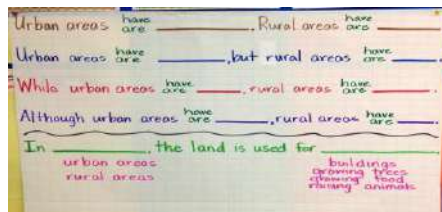 Urban areas have are ______. Rural areas have are ______.
Urban areas have are ______, but rural areas have are ______.
While urban areas have are ______, rural areas have are ______.
Although urban areas have are ______, rural areas have are ______.
In ______, the land is used for ______.
urban areas buildings
rural areas growing trees
growing food
raising animals